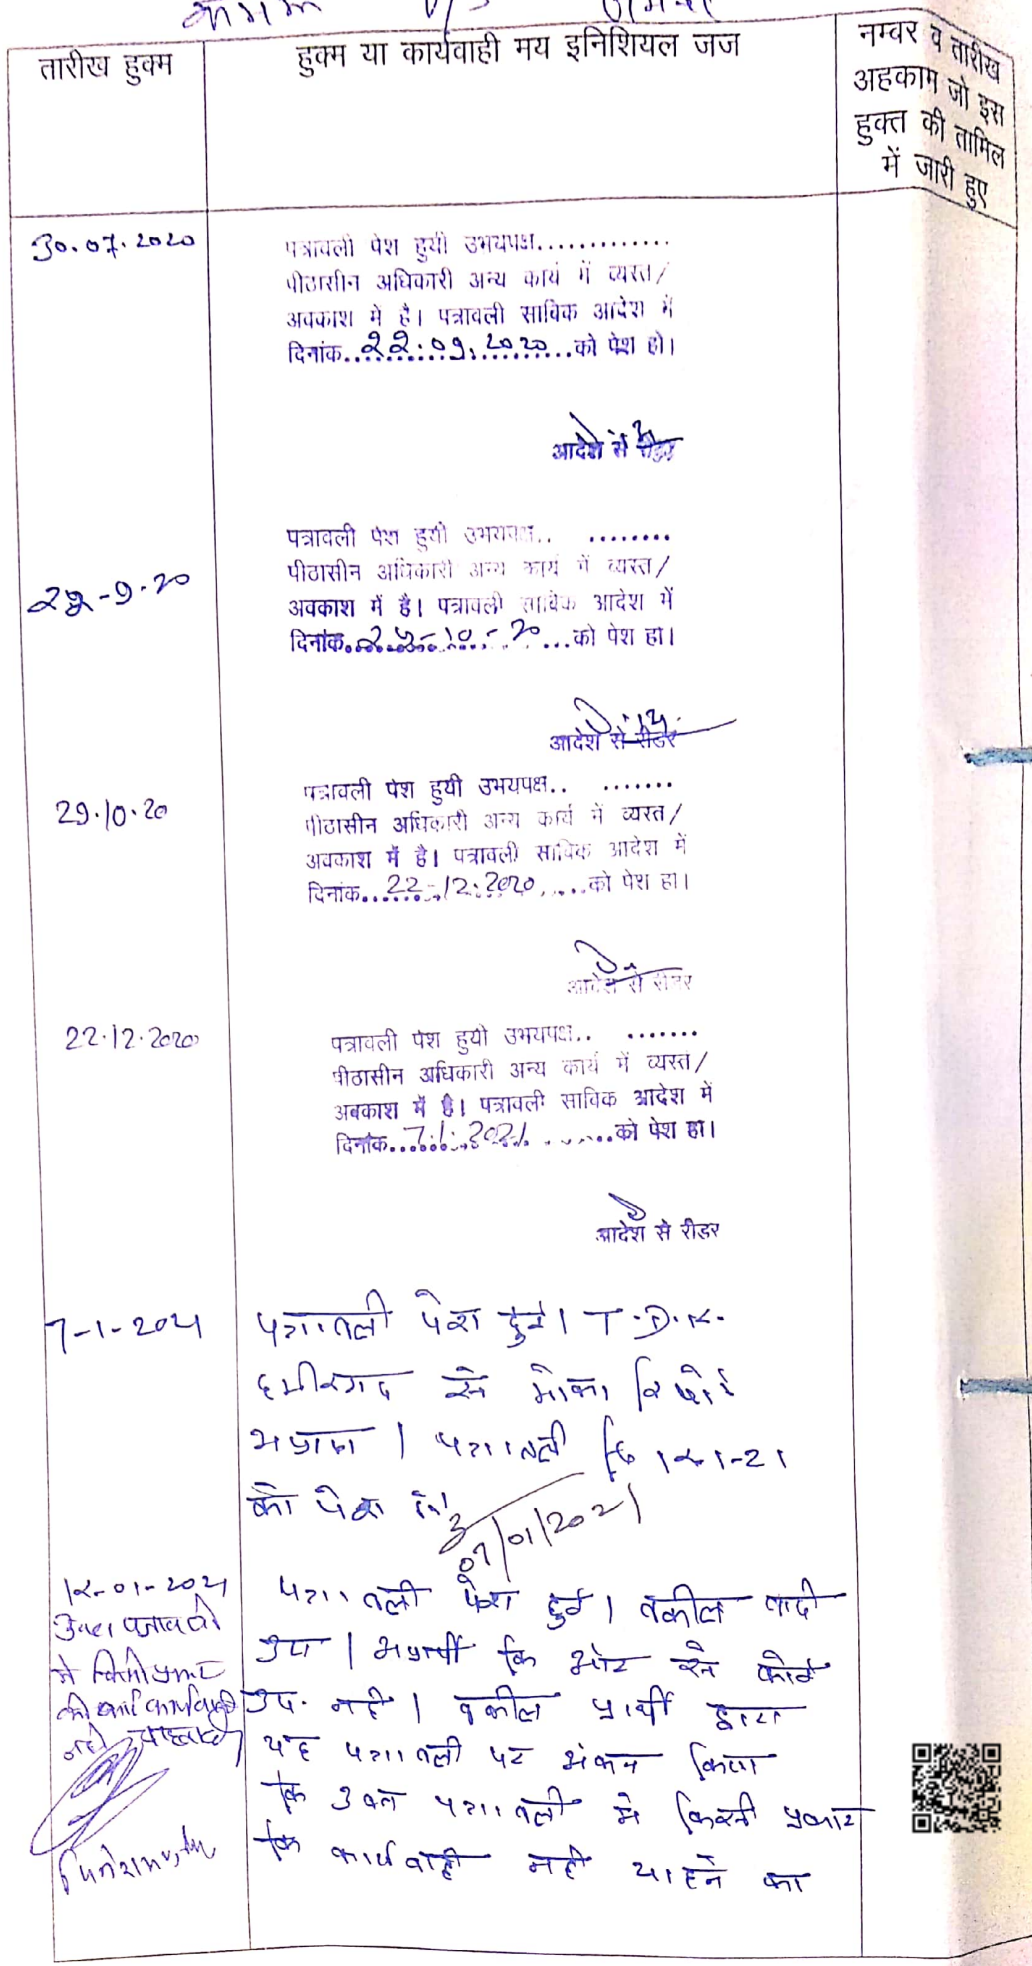 तारीख हुक्म
हुक्म या कार्यवाही मय इनिशियल जज
नम्वर व तारीख
अहकाम जो इस
हुक्त की तामिल
में जारी हुए
30.07.2020
पत्रावली पेश हुयी उभयपक्ष.............
पीठासीन अधिकारी अन्य कार्य में व्यस्त/
अवकाश में है। पत्रावली साविक आदेश में
दिनांक..22.09.2020...को पेश हो।
आदेश से रीडर
22-9-20
पत्रावली पेश हुयी उभयपक्ष.. ........
पीठासीन अधिकारी अन्य कार्य में व्यस्त/
अवकाश में है। पत्रावली साविक आदेश में
दिनांक. -10-20...को पेश हा।
आदेश से रीडर
29.10.20
पत्रावली पेश हुयी उभयपक्ष.. .......
पीठासीन अधिकारी अन्य कार्य में व्यस्त/
अवकाश में है। पत्रावली साविक आदेश में
दिनांक...22-12-2020....को पेश हा।
आदेश से रीडर
22.12.2020
पत्रावली पेश हुयी उभयपक्ष.. .......
पीठासीन अधिकारी अन्य कार्य में व्यस्त/
अवकाश में है। पत्रावली साविक आदेश में
दिनांक...7.1.2021.....को पेश हा।
आदेश से रीडर
7-1-2021
पत्रावली पेश हुई। T.D.R.
हमीरगढ से मोका रिपोर्ट
अप्राप्त। पत्रावली दि 12-1-21
को पेश हो।
07/01/2021
12-01-2021
पत्रावली पेश हुई। वकील वादी
उप। अप्रार्थी कि ओर से कोई
उप. नही। वकील प्रार्थी द्वारा
यह पत्रावली पर अंकन किया
कि उक्त पत्रावली मे किसी प्रकार
कि कार्यवाही नही चाहने का
उक्त पत्रावली
मे किसी प्रकार
की कोई कार्यवाही
नही चाहता